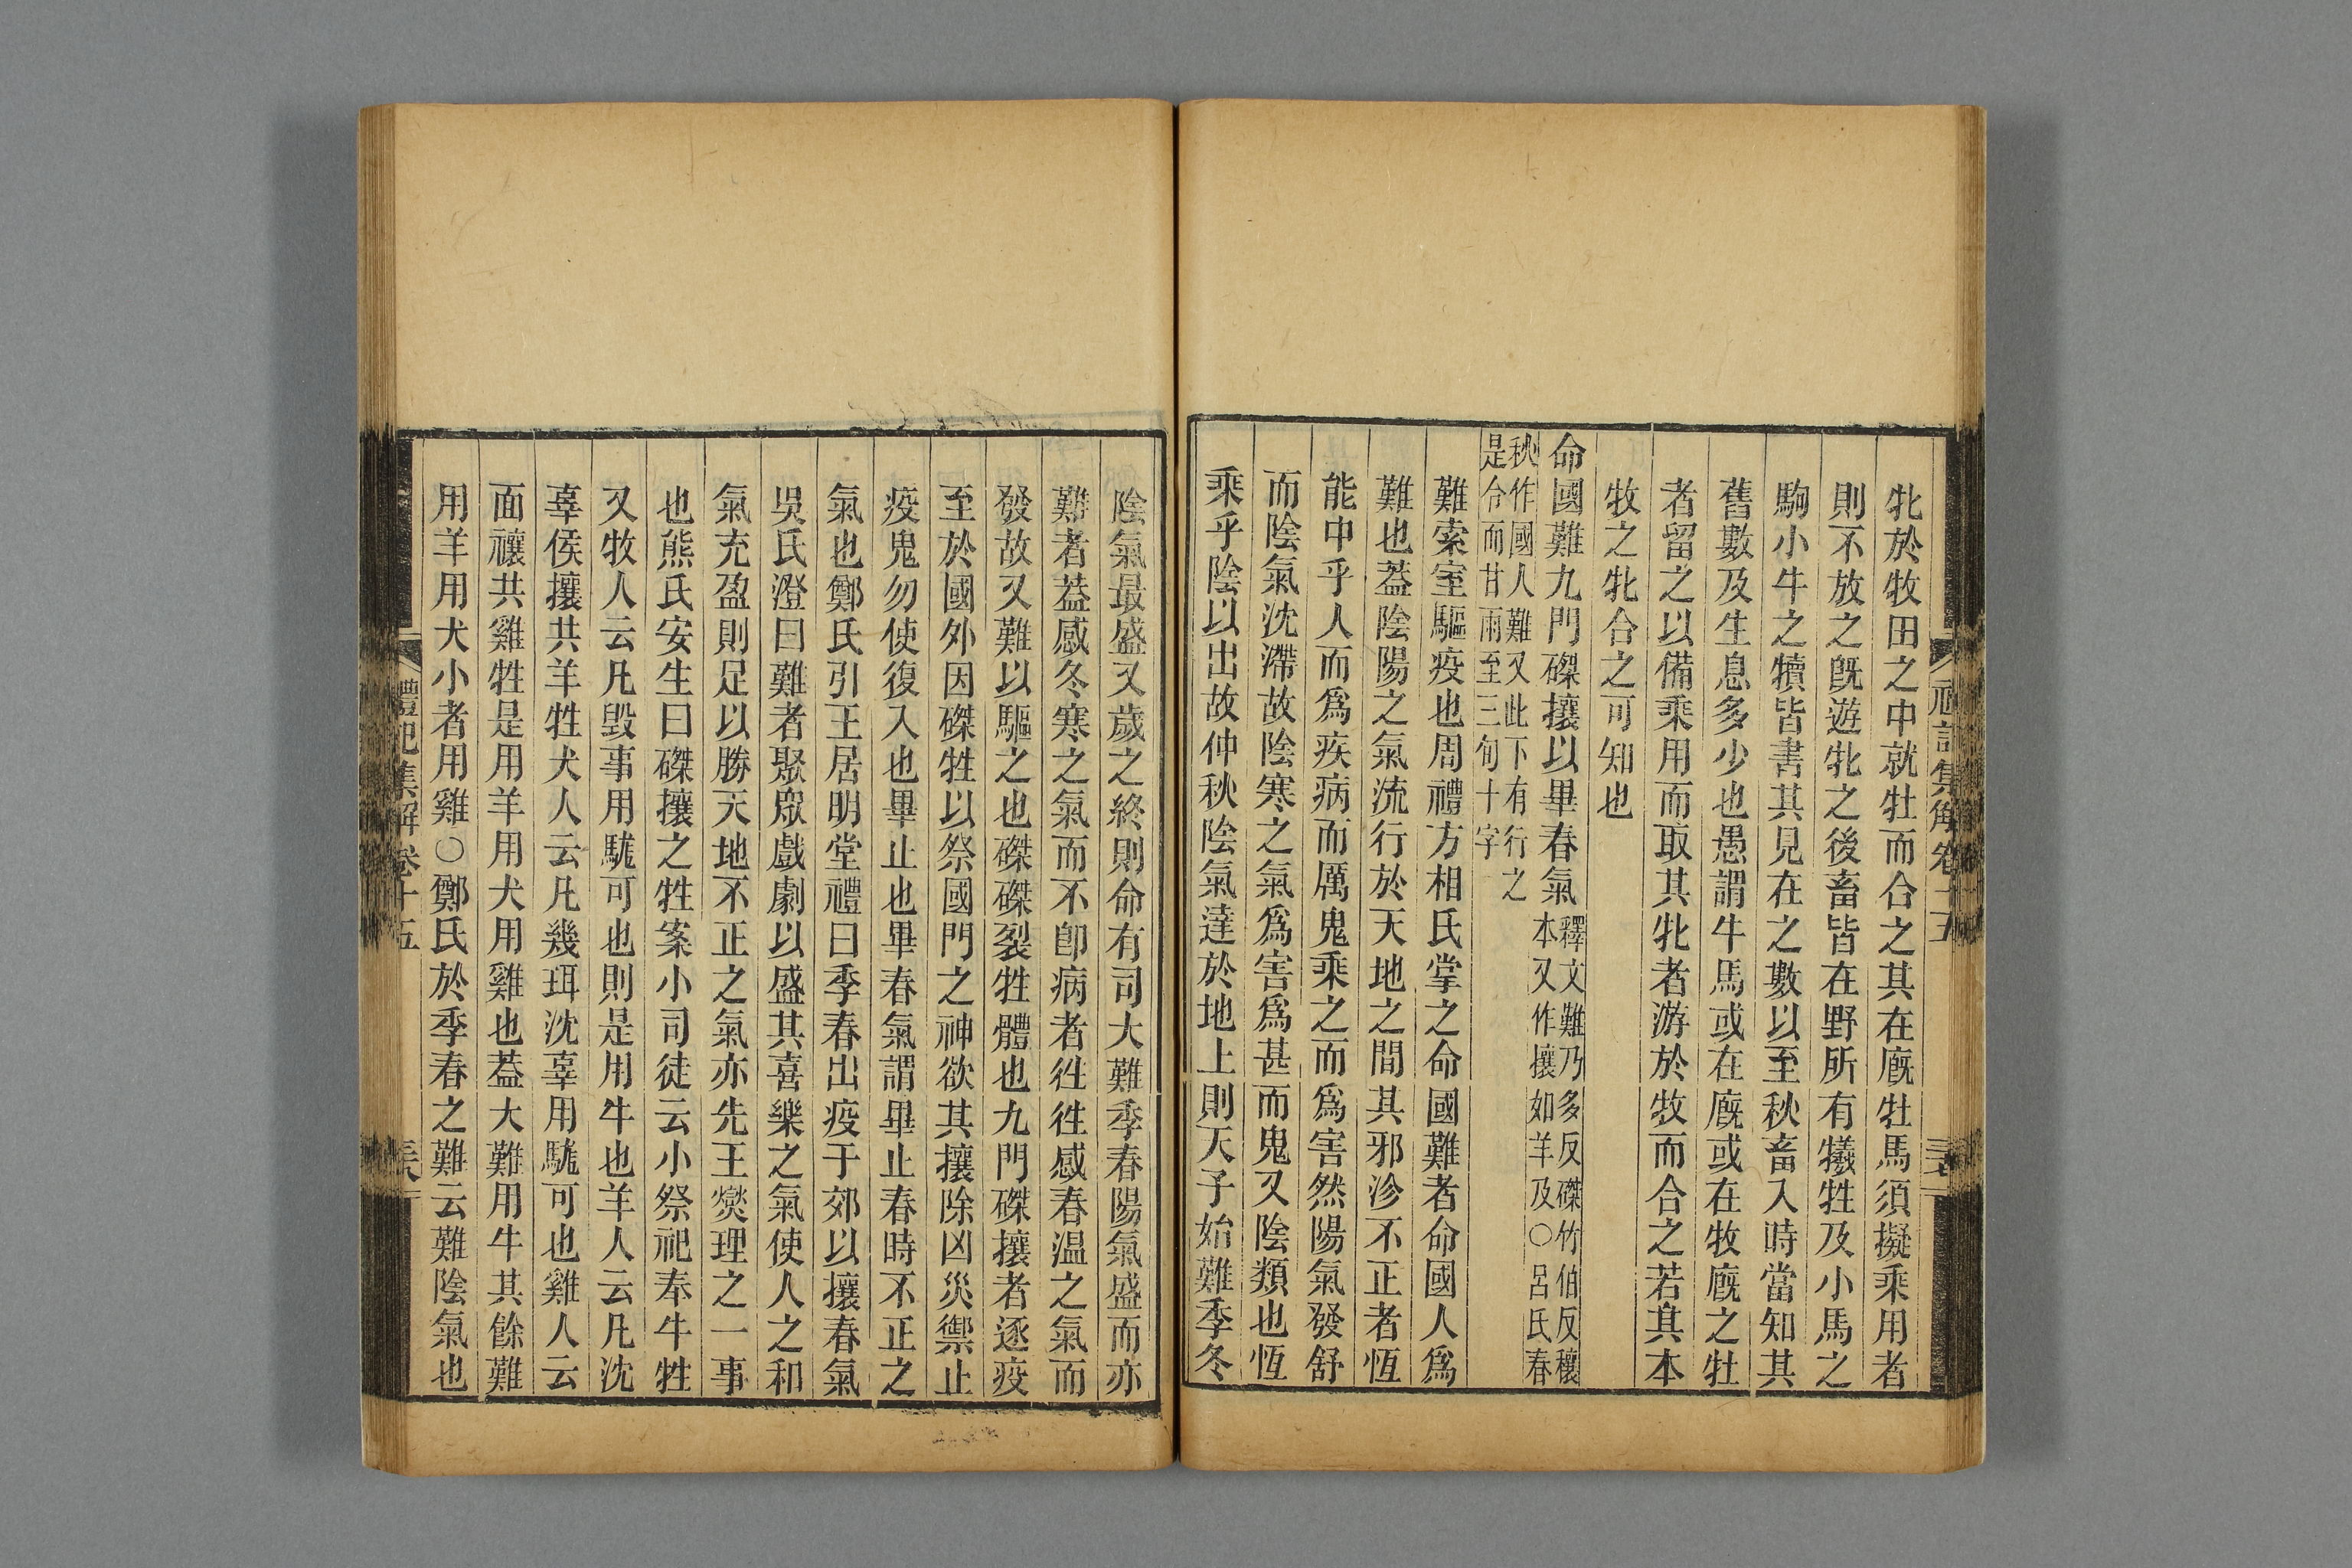 牝於牧田之中就牡而合之其在廐牡馬須擬乘用者
則不放之旣遊牝之後畜皆在野所有犧牲及小馬之
駒小牛之犢皆書其見在之數以至秋畜入時當知其
舊數及生息多少也愚謂牛馬或在廐或在牧廐之牡
者留之以備乘用而取其牝者游於牧而合之若其本
牧之牝合之可知也
命國難九門磔攘以畢春氣
釋文難乃多反磔竹伯反穰
本又作攘如羊及○呂氏春
秋作國人難又此下有行之
是令而甘雨至三旬十字
難索室驅疫也周禮方相氏掌之命國難者命國人爲
難也蓋陰陽之氣流行於天地之間其邪沴不正者恆
能中乎人而爲疾病而厲鬼乘之而爲害然陽氣發舒
而陰氣沈滯故陰寒之氣爲害爲甚而鬼又陰類也恆
乘乎陰以出故仲秋陰氣達於地上則天子始難季冬
陰氣最盛又歲之終則命有司大難季春陽氣盛而亦
難者蓋感冬寒之氣而不卽病者徃徃感春温之氣而
發故又難以驅之也磔磔裂牲體也九門磔攘者逐疫
至於國外因磔牲以祭國門之神欲其攘除凶災禦止
疫鬼勿使復入也畢止也畢春氣謂畢止春時不正之
氣也鄭氏引王居明堂禮曰季春出疫于郊以攘春氣
吳氏澄曰難者聚眾戲劇以盛其喜樂之氣使人之和
氣充盈則足以勝天地不正之氣亦先王爕理之一事
也熊氏安生曰磔攘之牲案小司徒云小祭祀奉牛牲
又牧人云凡毀事用駹可也則是用牛也羊人云凡沈
辜侯攘共羊牲犬人云凡幾珥沈辜用駹可也雞人云
面禳共雞牲是用羊用犬用雞也蓋大難用牛其餘難
用羊用犬小者用雞○鄭氏於季春之難云難陰氣也
禮記集解卷十五